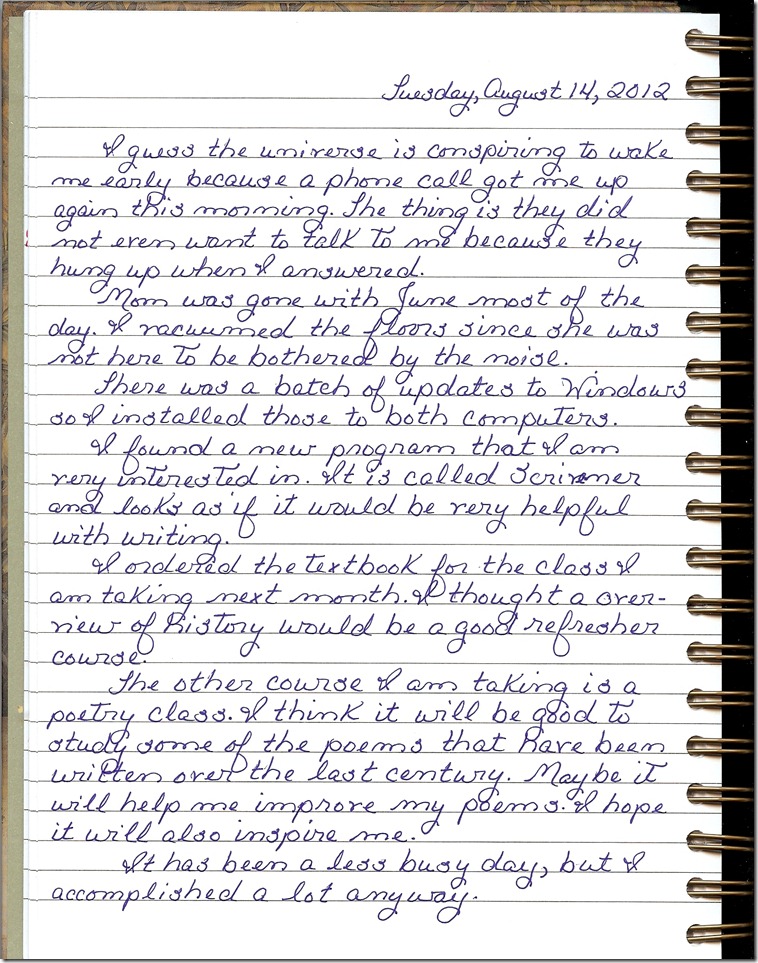 Tuesday, August 14, 2012
I guess the universe is conspiring to wake
me early because a phone call got me up
again this morning. The thing is they did
not even want to talk to me because they
hung up when I answered.
Mom was gone with June most of the
day. I vacuumed the floors since she was
not here to be bothered by the noise.
There was a batch of updates to Windows
so I installed those to both computers.
I found a new program that I am
very interested in. It is called
and looks as if it would be very helpful
with writing.
I ordered the textbook for the class I
am taking next month. I thought a over-
view of History would be a good refresher
course.
The other course I am taking is a
poetry class. I think it will be good to
study some of the poems that have been
written over the last century. Maybe it
will help me improve my poems. I hope
it will also inspire me.
It has been a less busy day, but I
accomplished a lot anyway.